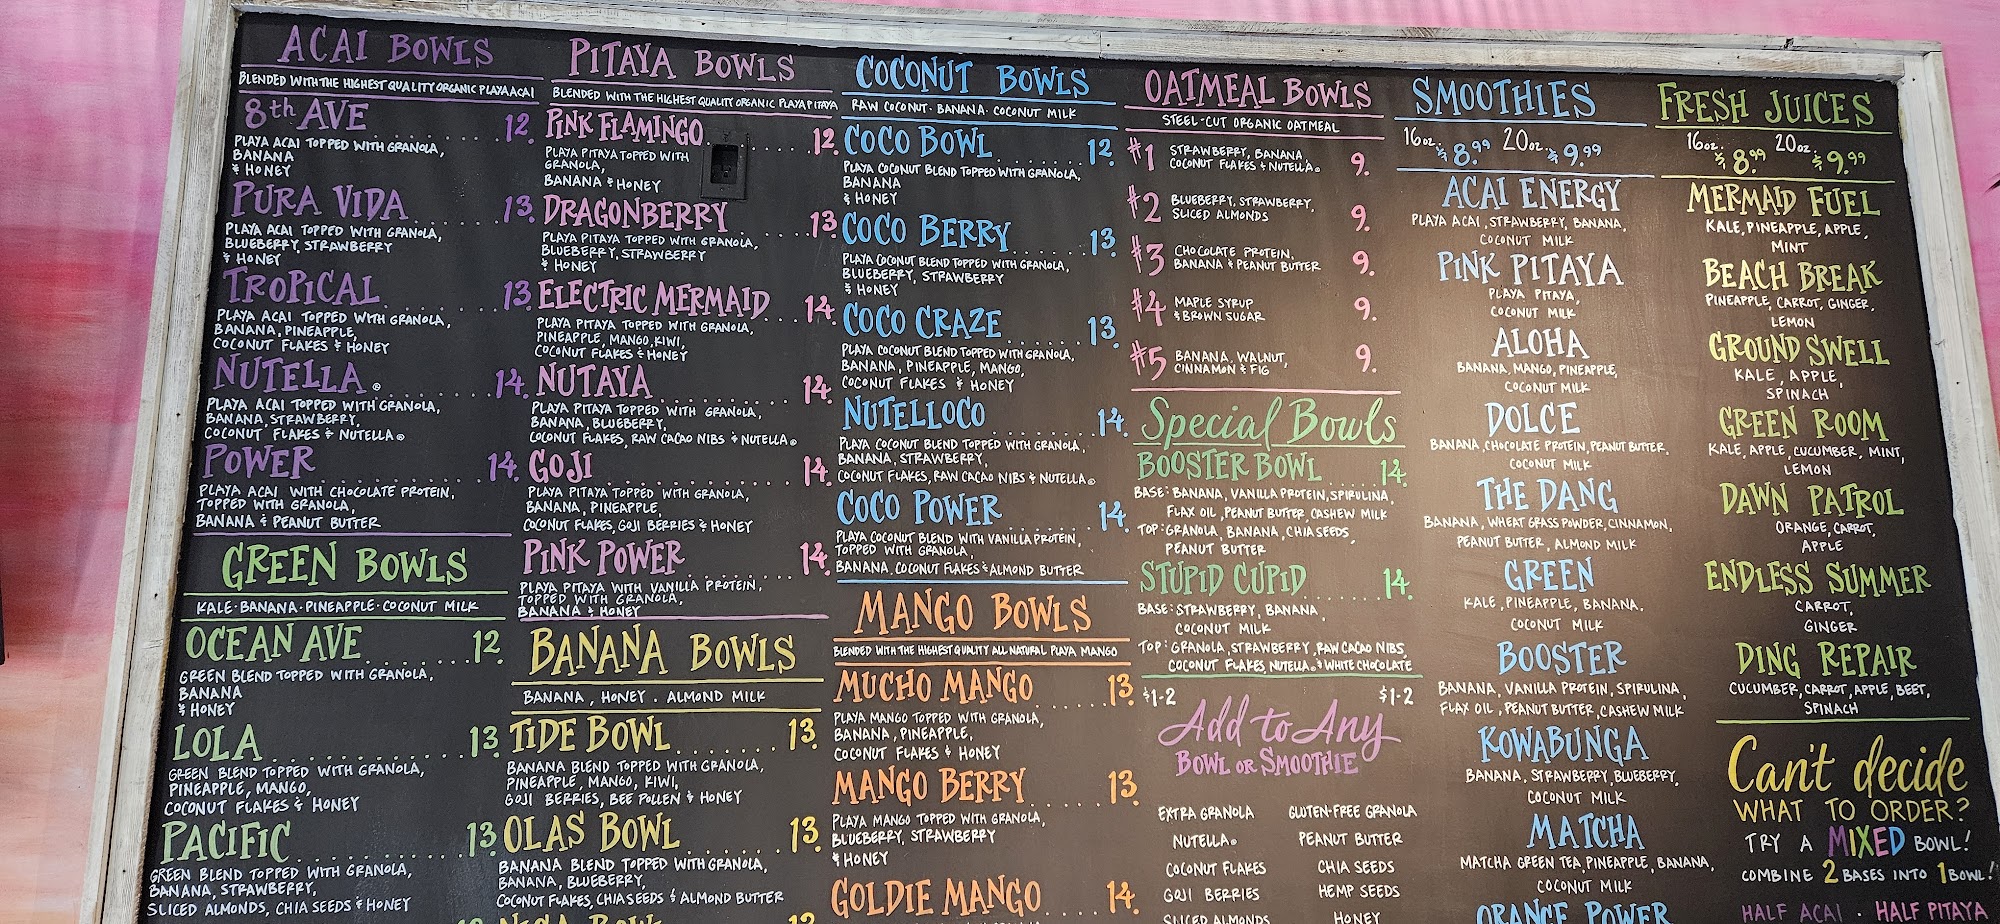 ACAI BOWLS
BLENDED WITH THE HIGHEST QUALITY ORGANIC PLAYA ACAI
8th AVE 12.
PLAYA ACAI TOPPED WITH GRANOLA,
BANANA
& HONEY
PURA VIDA 13.
PLAYA ACAI TOPPED WITH GRANOLA,
BLUEBERRY, STRAWBERRY
& HONEY
TROPICAL 13.
PLAYA ACAI TOPPED WITH GRANOLA,
BANANA, PINEAPPLE,
COCONUT FLAKES & HONEY
NUTELLA® 14.
PLAYA ACAI TOPPED WITH GRANOLA,
BANANA, STRAWBERRY,
COCONUT FLAKES & NUTELLA®
POWER 14.
PLAYA ACAI WITH CHOCOLATE PROTEIN,
TOPPED WITH GRANOLA,
BANANA & PEANUT BUTTER
GREEN BOWLS
KALE·BANANA·PINEAPPLE·COCONUT MILK
OCEAN AVE 12.
GREEN BLEND TOPPED WITH GRANOLA,
BANANA
& HONEY
LOLA 13.
GREEN BLEND TOPPED WITH GRANOLA,
PINEAPPLE, MANGO,
COCONUT FLAKES & HONEY
PACIFIC 13.
GREEN BLEND TOPPED WITH GRANOLA,
BANANA, STRAWBERRY,
SLICED ALMONDS, CHIA SEEDS & HONEY
PITAYA BOWLS
BLENDED WITH THE HIGHEST QUALITY ORGANIC PLAYA PITAYA
PINK FLAMINGO 12.
PLAYA PITAYA TOPPED WITH
GRANOLA,
BANANA & HONEY
DRAGONBERRY 13.
PLAYA PITAYA TOPPED WITH GRANOLA,
BLUEBERRY, STRAWBERRY
& HONEY
ELECTRIC MERMAID 14.
PLAYA PITAYA TOPPED WITH GRANOLA,
PINEAPPLE, MANGO, KIWI,
COCONUT FLAKES & HONEY
NUTAYA 14.
PLAYA PITAYA TOPPED WITH GRANOLA,
BANANA, BLUEBERRY,
COCONUT FLAKES, RAW CACAO NIBS & NUTELLA®
GOJI 14.
PLAYA PITAYA TOPPED WITH GRANOLA,
BANANA, PINEAPPLE,
COCONUT FLAKES, GOJI BERRIES & HONEY
PINK POWER 14.
PLAYA PITAYA WITH VANILLA PROTEIN,
TOPPED WITH GRANOLA,
BANANA & HONEY
BANANA BOWLS
BANANA, HONEY . ALMOND MILK
TIDE BOWL 13.
BANANA BLEND TOPPED WITH GRANOLA,
PINEAPPLE, MANGO, KIWI,
GOJI BERRIES, BEE POLLEN & HONEY
OLAS BOWL 13.
BANANA BLEND TOPPED WITH GRANOLA,
BANANA, BLUEBERRY,
COCONUT FLAKES, CHIA SEEDS & ALMOND BUTTER
COCONUT BOWLS
RAW COCONUT · BANANA · COCONUT MILK
COCO BOWL 12.
PLAYA COCONUT BLEND TOPPED WITH GRANOLA,
BANANA
& HONEY
COCO BERRY 13.
PLAYA COCONUT BLEND TOPPED WITH GRANOLA,
BLUEBERRY, STRAWBERRY
& HONEY
COCO CRAZE 13.
PLAYA COCONUT BLEND TOPPED WITH GRANOLA,
BANANA, PINEAPPLE, MANGO,
COCONUT FLAKES & HONEY
NUTELLOCO 14.
PLAYA COCONUT BLEND TOPPED WITH GRANOLA,
BANANA, STRAWBERRY,
COCONUT FLAKES, RAW CACAO NIBS & NUTELLA®
COCO POWER 14.
PLAYA COCONUT BLEND WITH VANILLA PROTEIN,
TOPPED WITH GRANOLA,
BANANA, COCONUT FLAKES & ALMOND BUTTER
MANGO BOWLS
BLENDED WITH THE HIGHEST QUALITY ALL NATURAL PLAYA MANGO
MUCHO MANGO 13.
PLAYA MANGO TOPPED WITH GRANOLA,
BANANA, PINEAPPLE,
COCONUT FLAKES & HONEY
MANGO BERRY 13.
PLAYA MANGO TOPPED WITH GRANOLA,
BLUEBERRY, STRAWBERRY
& HONEY
GOLDIE MANGO 14.
OATMEAL BOWLS
STEEL-CUT ORGANIC OATMEAL
#1 STRAWBERRY, BANANA, 9.
COCONUT FLAKES & NUTELLA®
#2 BLUEBERRY, STRAWBERRY, 9.
SLICED ALMONDS
#3 CHOCOLATE PROTEIN, 9.
BANANA & PEANUT BUTTER
#4 MAPLE SYRUP 9.
& BROWN SUGAR
#5 BANANA, WALNUT, 9.
CINNAMON & FIG
Special Bowls
BOOSTER BOWL 14.
BASE: BANANA, VANILLA PROTEIN, SPIRULINA,
FLAX OIL, PEANUT BUTTER, CASHEW MILK
TOP: GRANOLA, BANANA, CHIA SEEDS,
PEANUT BUTTER
STUPID CUPID 14.
BASE: STRAWBERRY, BANANA
COCONUT MILK
TOP: GRANOLA, STRAWBERRY, RAW CACAO NIBS,
COCONUT FLAKES, NUTELLA® & WHITE CHOCOLATE
$1-2 $1-2
Add to Any
BOWL OR SMOOTHIE
EXTRA GRANOLA GLUTEN-FREE GRANOLA
NUTELLA® PEANUT BUTTER
COCONUT FLAKES CHIA SEEDS
GOJI BERRIES HEMP SEEDS
SLICED ALMONDS HONEY
SMOOTHIES
16oz. $8.99 20oz. $9.99
ACAI ENERGY
PLAYA ACAI, STRAWBERRY, BANANA,
COCONUT MILK
PINK PITAYA
PLAYA PITAYA,
COCONUT MILK
ALOHA
BANANA, MANGO, PINEAPPLE,
COCONUT MILK
DOLCE
BANANA, CHOCOLATE PROTEIN, PEANUT BUTTER,
COCONUT MILK
THE DANG
BANANA, WHEAT GRASS POWDER, CINNAMON,
PEANUT BUTTER, ALMOND MILK
GREEN
KALE, PINEAPPLE, BANANA,
COCONUT MILK
BOOSTER
BANANA, VANILLA PROTEIN, SPIRULINA,
FLAX OIL, PEANUT BUTTER, CASHEW MILK
KOWABUNGA
BANANA, STRAWBERRY, BLUEBERRY,
COCONUT MILK
MATCHA
MATCHA GREEN TEA, PINEAPPLE, BANANA,
COCONUT MILK
ORANGE POWER
FRESH JUICES
16oz. $8.99 20oz. $9.99
MERMAID FUEL
KALE, PINEAPPLE, APPLE,
MINT
BEACH BREAK
PINEAPPLE, CARROT, GINGER,
LEMON
GROUND SWELL
KALE, APPLE,
SPINACH
GREEN ROOM
KALE, APPLE, CUCUMBER, MINT,
LEMON
DAWN PATROL
ORANGE, CARROT,
APPLE
ENDLESS SUMMER
CARROT,
GINGER
DING REPAIR
CUCUMBER, CARROT, APPLE, BEET,
SPINACH
Can't decide
WHAT TO ORDER?
TRY A MIXED BOWL!
COMBINE 2 BASES INTO 1 BOWL!
HALF ACAI . HALF PITAYA